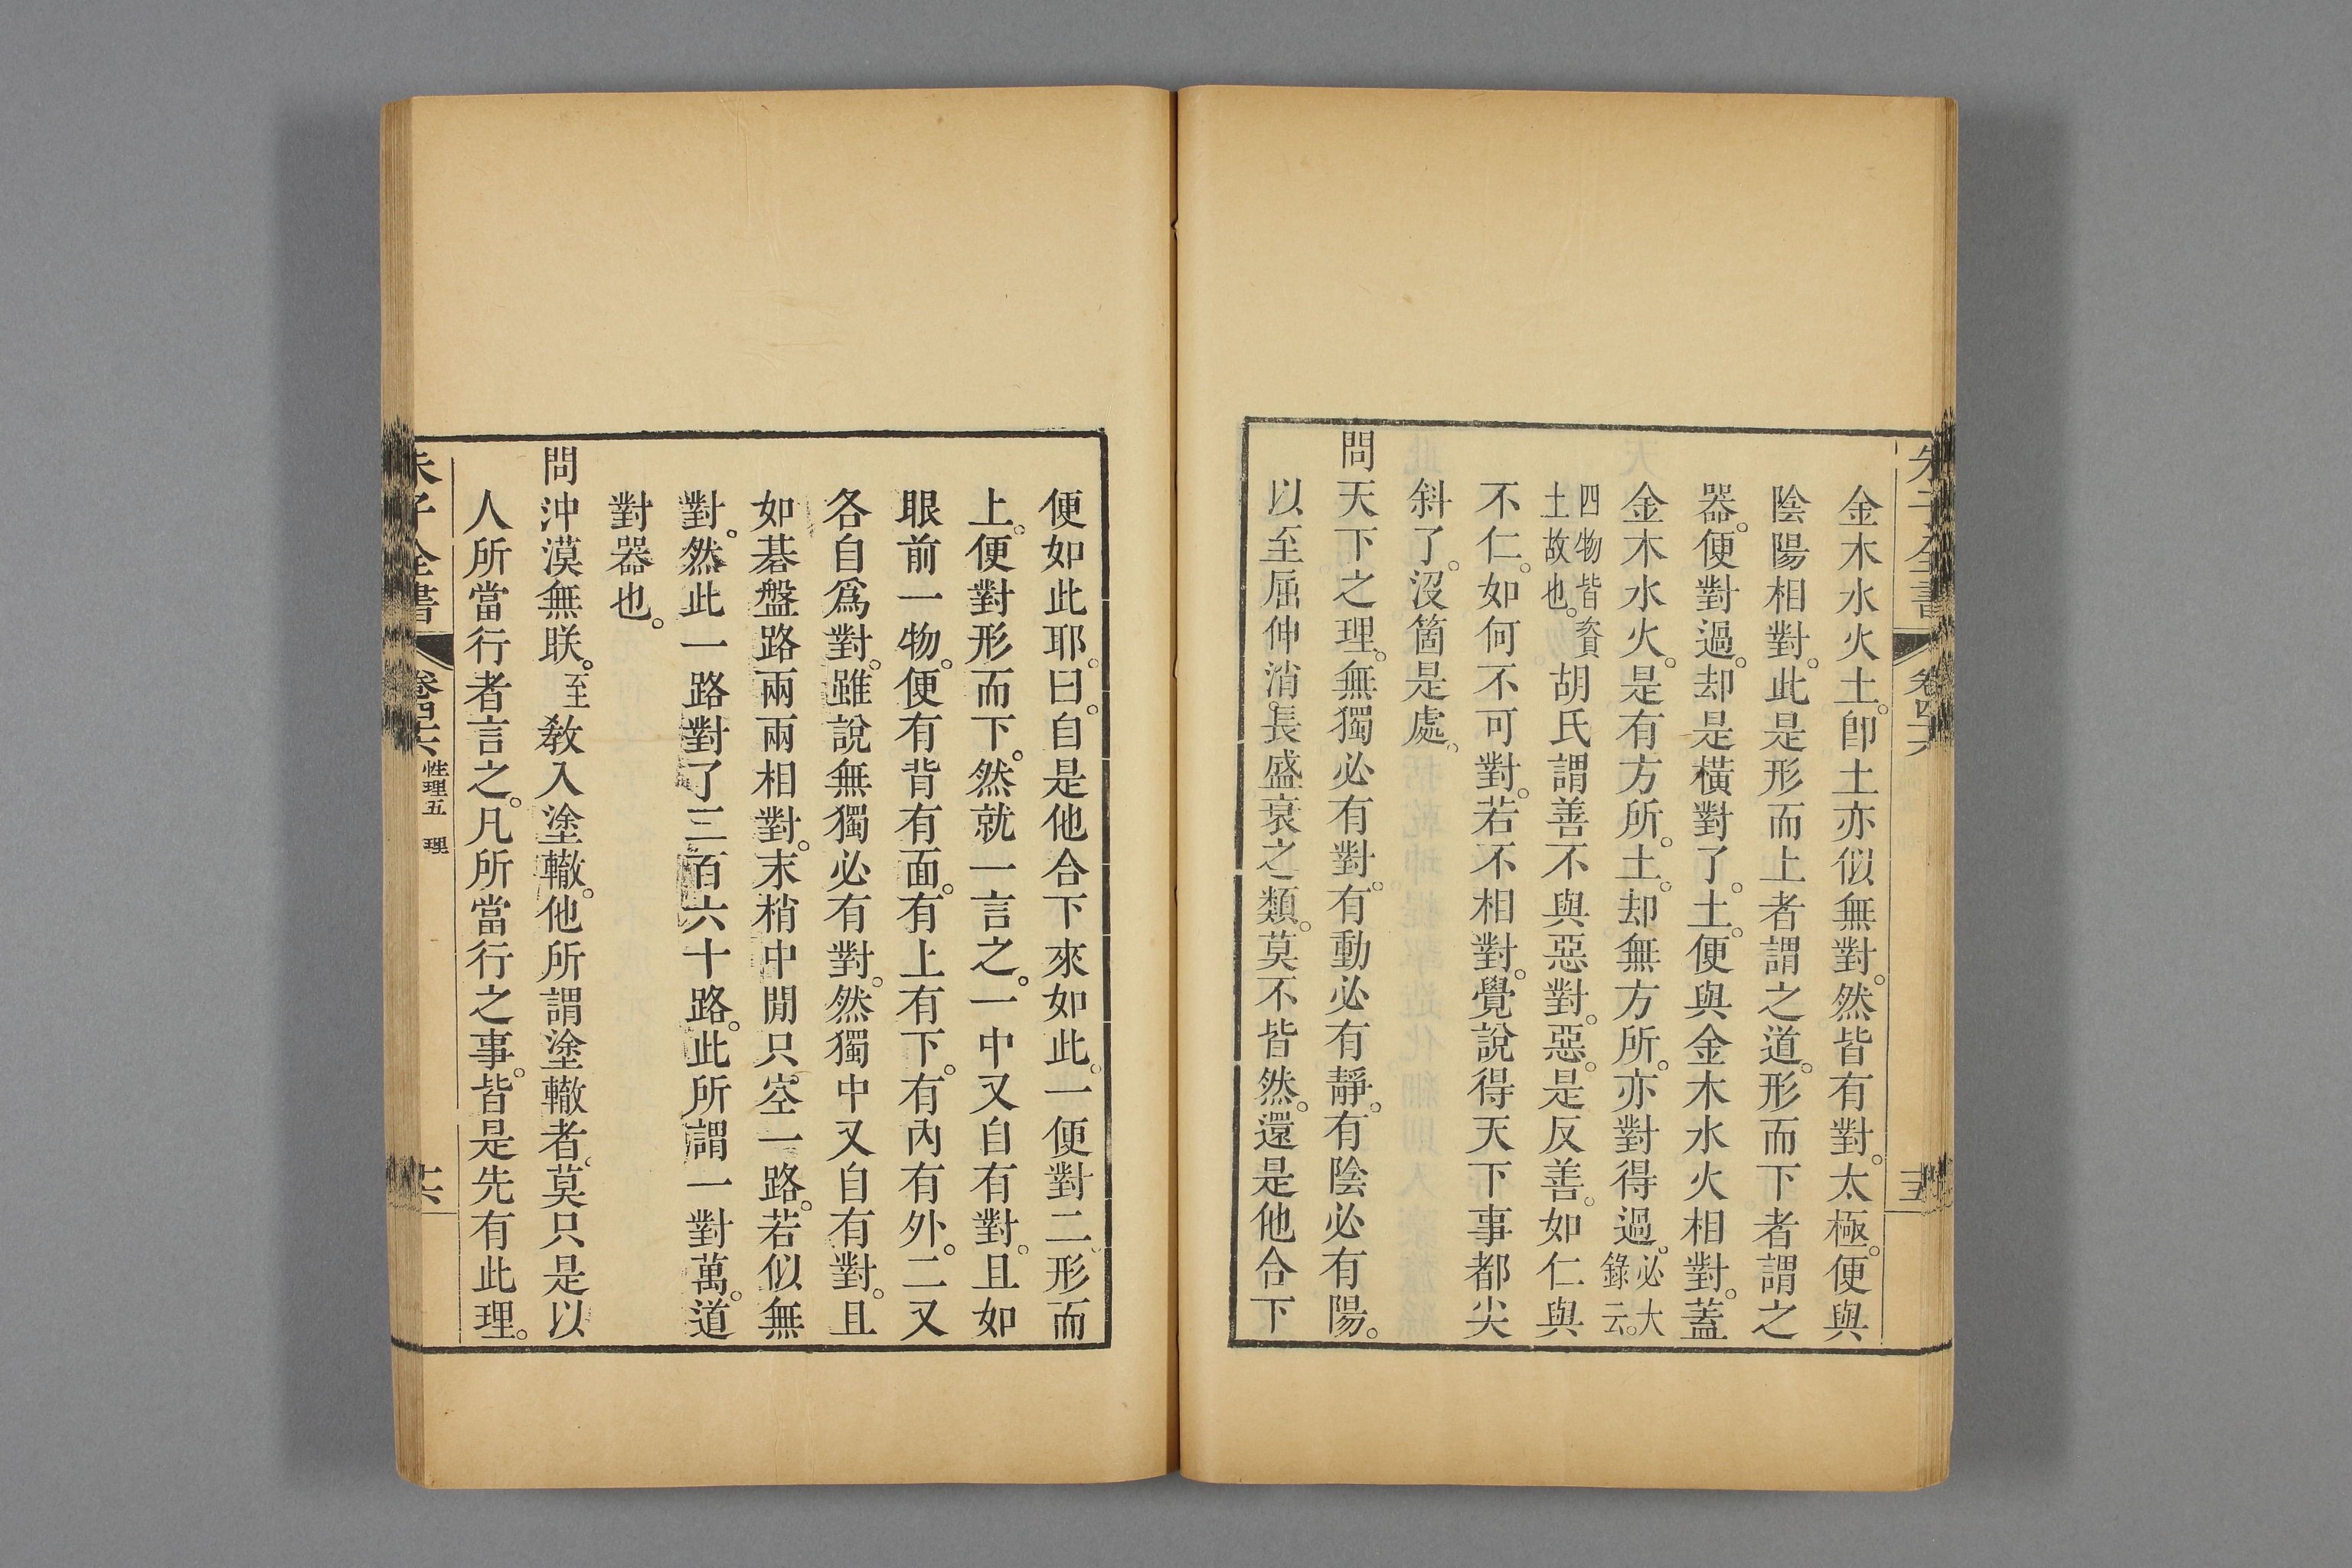 朱子全書 卷四六 十五
金木水火土。卽土亦似無對。然皆有對。太極。便與
陰陽相對。此是形而上者謂之道。形而下者謂之
器。便對過。却是橫對了。土。便與金木水火相對。蓋
金木水火。是有方所。土。却無方所。亦對得過。必大錄云。
四物皆資土故也。胡氏謂善不與惡對。惡。是反善。如仁與
不仁。如何不可對。若不相對。覺說得天下事都尖
斜了。沒箇是處。
問天下之理。無獨必有對。有動必有靜。有陰必有陽。
以至屈伸消長盛衰之類。莫不皆然。還是他合下
便如此耶。曰。自是他合下來如此。一便對二。形而
上。便對形而下。然就一言之。一中又自有對。且如
眼前一物。便有背有面。有上有下。有內有外。二又
各自爲對。雖說無獨必有對。然獨中又自有對。且
如碁盤路兩兩相對。末梢中閒只空一路。若似無
對。然此一路對了三百六十路。此所謂一對萬。道
對器也。
問沖漠無朕。至教入塗轍。他所謂塗轍者。莫只是以
人所當行者言之。凡所當行之事。皆是先有此理。
朱子全書 卷四六 性理五 理 十六